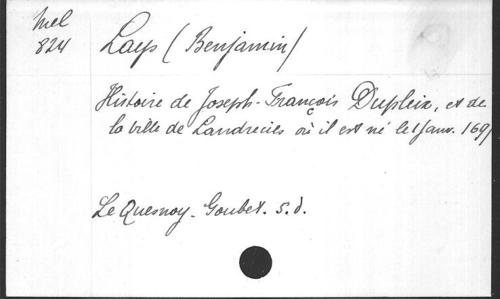 Mel
824
Lays (Benjamin)
Histoire de Joseph-François Dupleix, et de
la ville de Landrecies où il est né le 1 janv. 1697
Le Quesnoy. Goubet. s.d.